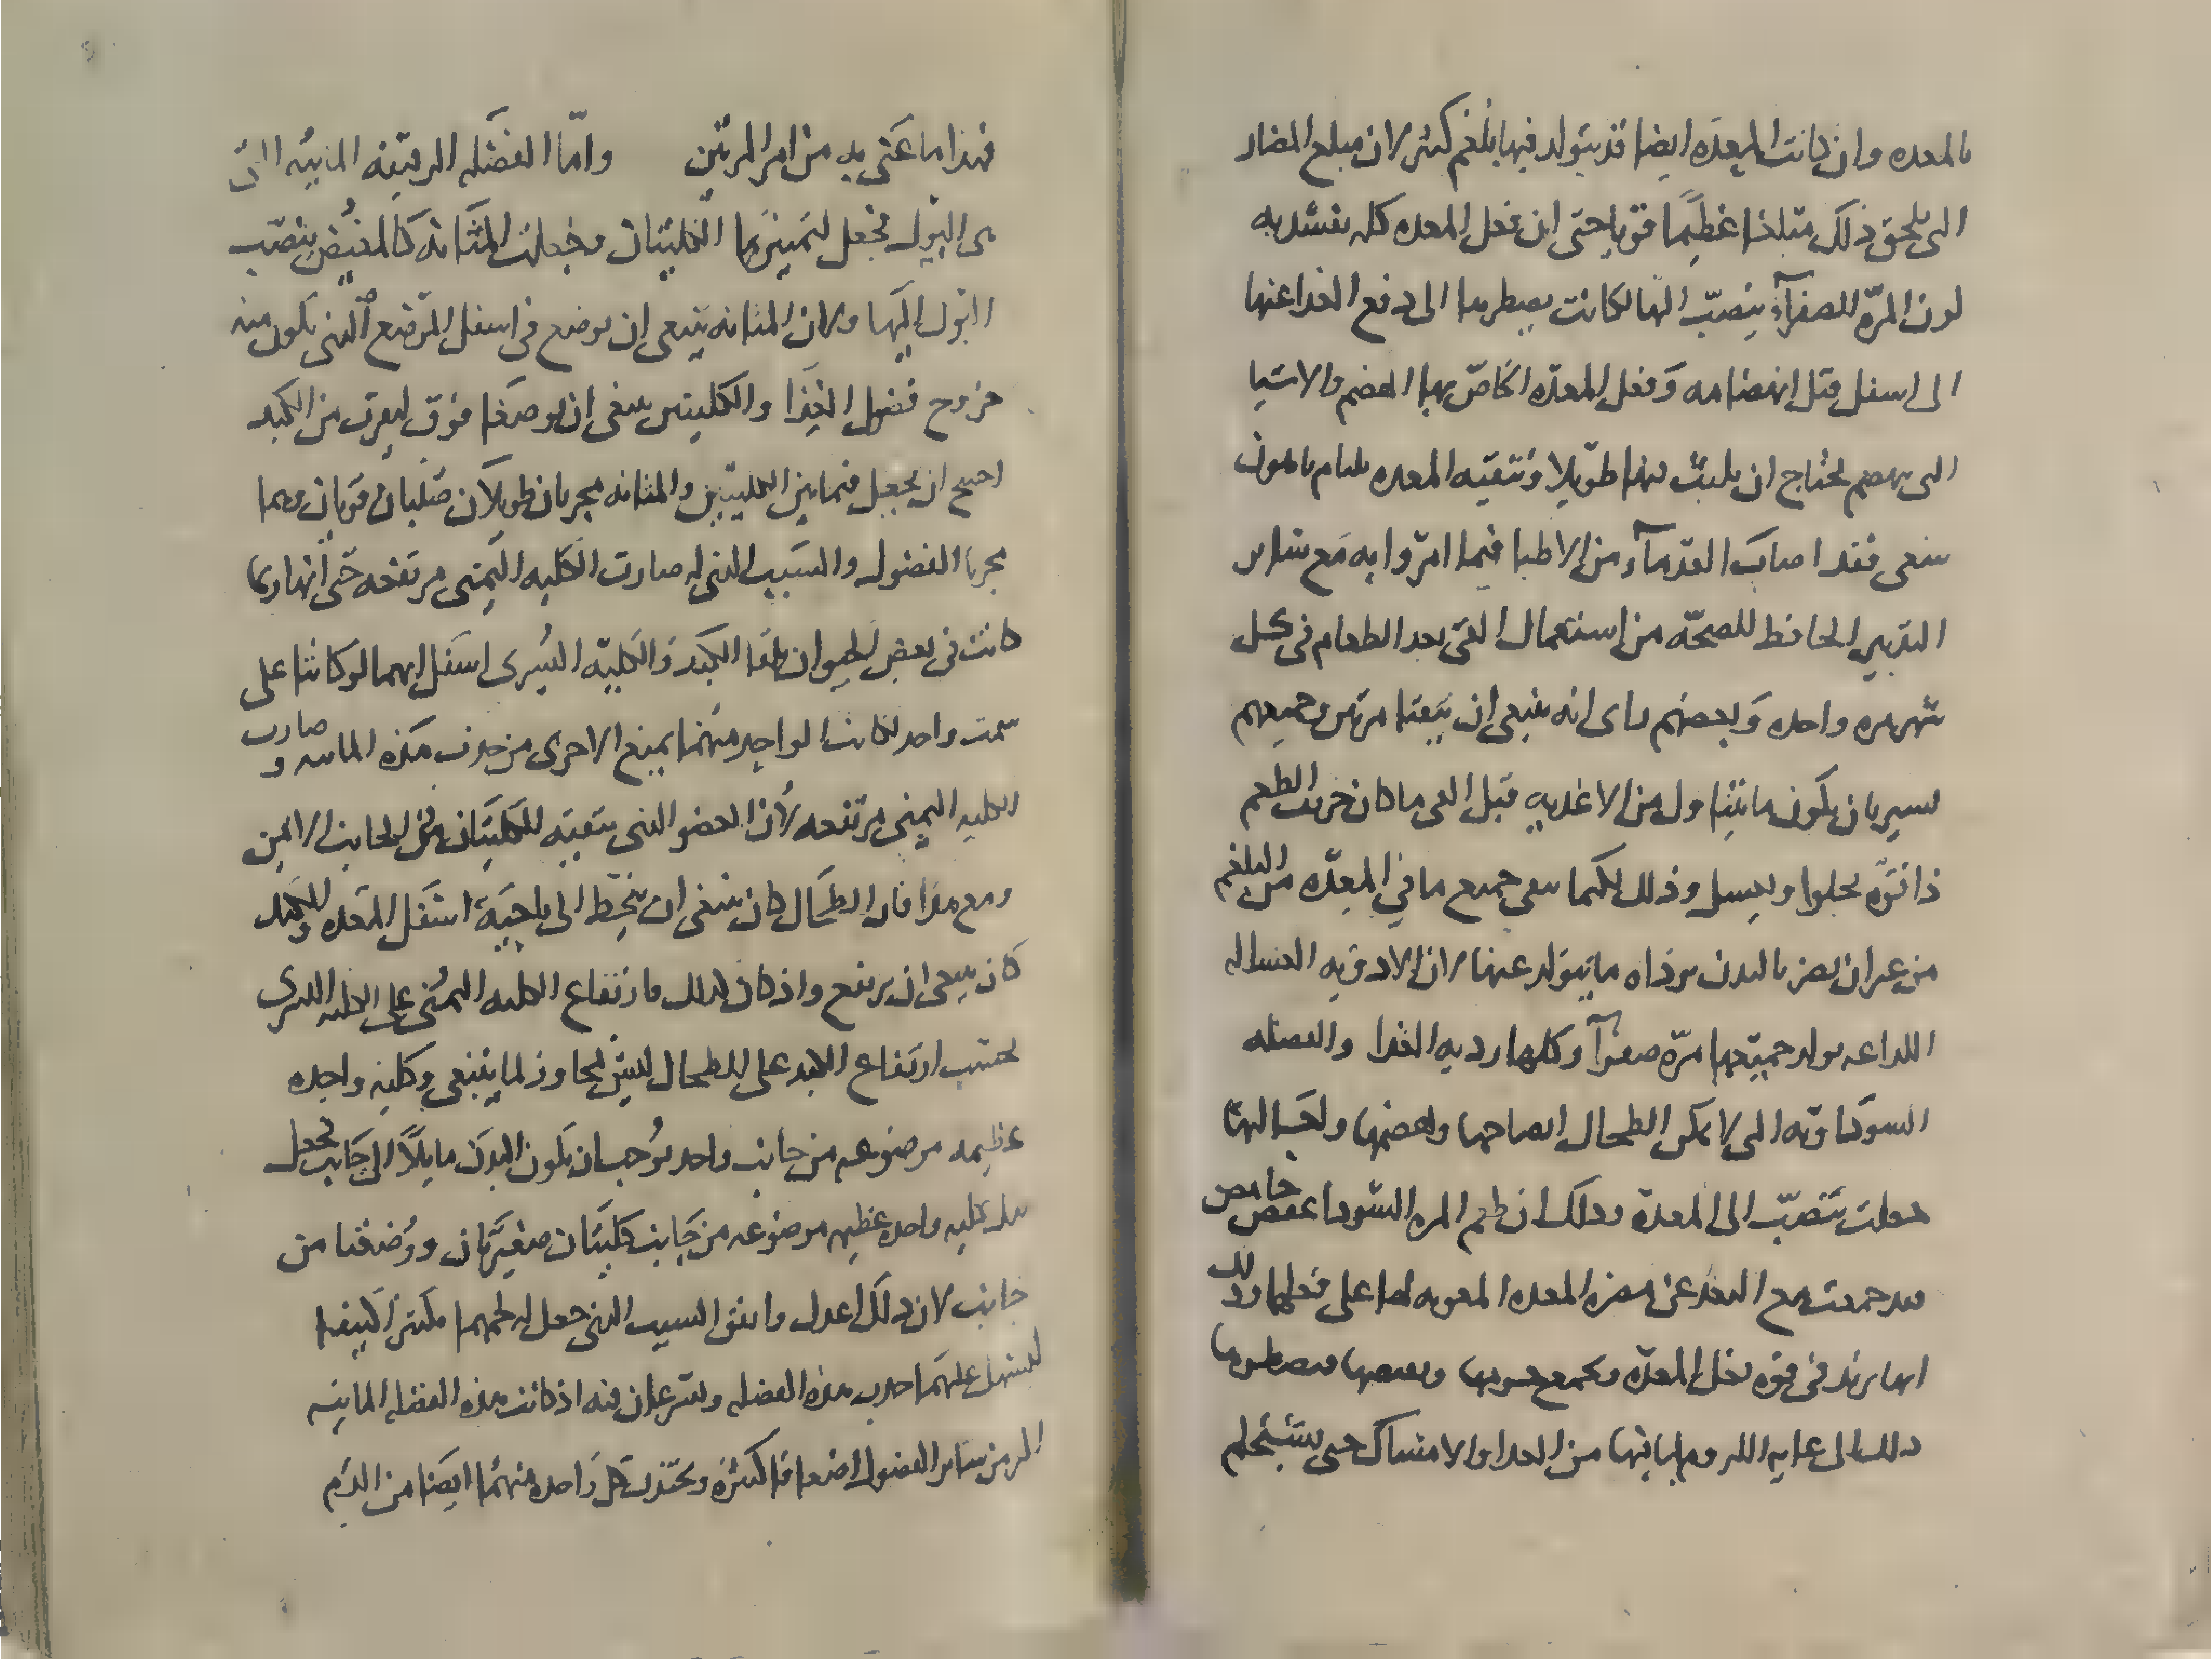 بالمعده وان كانت المعدَه ايضا قد يتولد فيها بلغم كثير لان مبلغ المضار
التى يلحق ذلك مبلغا عظيمًا قويا حتى ان فعل المعده كله يفسد به
لون المرّه الصفرآء ينصبّ اليها لكانت يضطرها الى دفع الغدا عنها
الى اسفل قبل انهضامه وَفعل المعدّه الخاصّ بها الهضم والاشيا
التى تهضم تحتاج ان يلبث لبثا طوَيلا وَتنقيه المعده
ينبغى فقد اصابَ القدمآء من الاطبا فيما امرّوا به مَع سَاير
التدبير الحافظ للصحّه من استعمال القى بعد الطعام فى كل
شهر مره واحده وَبعضهم راى انه ينبغى ان يتقيا مرتين وجميعهم
يسير بان يكون ما يتناول من الاغديه قبل القى ما كان حريف الطعم
ذا قوّه تجلوا وتغسل وذلك لكيما ينقى جميع ما في المعِدّه من البلغم
من غير ان يضر بالبدن برداه ما يتولد عنها لان الادويه الغساله
اللداعه يولد جميعها مرّه صفرآ وكلها رديه الغدا والفضله
السوَداويّه التى لا يمكن الطحال انضاجها وهضمها
جعلت تنصبّ الى المعدة وذلك ان طعم المره السَّودا عفص حامض
فقد جمعت مع البعد عن مضرة المعده المعونه لها على فعلها وذلك
انها تزيد فى قوه فعل المعدّه وتجمع وتقبضها وتضطرها
ذلك الى غايه اللزوم لما فيها من الغدا والامسَاك حتى يستحكم
فهذا ما عنى به من امر المرتين واَمّا الفضَله الرقيقه المائيَه التى
هى البول فجعل لتمييزَها الكليتان وجُعلت المثَانه كَالمغيُض ينصّب
البَول اليهَا ولان المثانه ينبغى ان يوضع في اسفل الموضع الذى يكون منه
خروج فضول الغِذَا والكليتين ينبغى ان يوضعَا فوق ليقرب من الكبد
احتيج ان يجعل فيما بين الكليتيين والمثانه مجريان طويلاَن صَلبان قويان وهما
مجريا الفضول والسَبب الذى له صارت الكليه اليَمنى مرتفعه حَتى انها ربما
كانت فى بعض الحيوان تلقا الكبد وَالكلية اليسُرى اسَفل انهما لو كانتا على
سمت واحد لكانت الواحده مِنهُما يمنع الاخرى من جذب هَذه المائيه وصارت
الكليه اليمنى مرتفعه لأن العضو الذى يتقيه الكليَتان هو فى الجانب الايمن
ومع هذا فان الطحَال كان ينبغى ان ينحِّط الى ناحيَه اسَفل المعَده والكبد
كَان ينبغى ان يرتفع واذ كان كذلك فارتفاع الكليه اليمُنى على الكليه اليسرى
بحسب ارتفاع الكبد على الطحال ليسَ يجاوز لما ينبغى وكليه واحِده
عظيمه موضوعه من جانب واحد يُوجب ان يكون البدَن مايلاً الى جَانب فجعل
بدل كليه واحده عظيمه موضوعه من جَانب كليَتان صغيرَتان ووُضعتا من
جانبين لان ذلك اعدل واتقن السبب الذى جعل له لحمهما مكتنزا كثيفا
ليسَهل عليهما جذب هذه الفضله ويسَرعان فيه اذ كانت هذه الفضله المائيه
اكثر من سَاير الفضول اضعافا كثيرَه ويجتذب كل وَاحده منهمُا ايضَا من الدَم